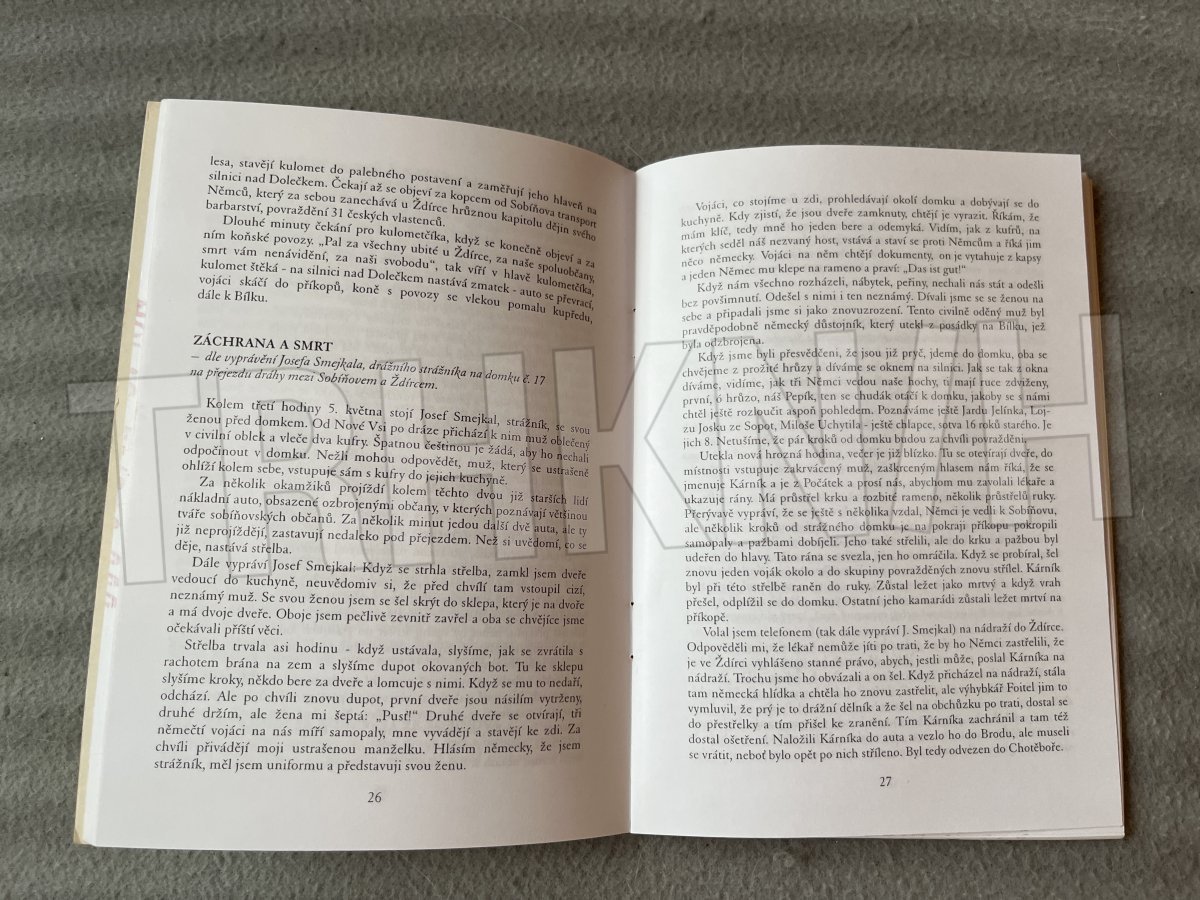 lesa, stavějí kulomet do palebného postavení a zaměřují jeho hlaveň na
silnici nad Dolečkem. Čekají až se objeví za kopcem od Sobíňova transport
Němců, který za sebou zanechává u Ždírce hrůznou kapitolu dějin svého
barbarství, povraždění 31 českých vlastenců.
Dlouhé minuty čekání pro kulometčíka, když se konečně objeví a za
ním koňské povozy. „Pal za všechny ubité u Ždírce, za naše spoluobčany,
smrt vám nenávidění, za naši svobodu“, tak víří v hlavě kulometčíka,
kulomet štěká - na silnici nad Dolečkem nastává zmatek - auto se převrací,
vojáci skáčí do příkopů, koně s povozy se vlekou pomalu kupředu,
dále k Bílku.
ZÁCHRANA A SMRT
– dle vyprávění Josefa Smejkala, drážního strážníka na domku č. 17
na přejezdu dráhy mezi Sobíňovem a Ždírcem.
Kolem třetí hodiny 5. května stojí Josef Smejkal, strážník, se svou
ženou před domkem. Od Nové Vsi po dráze přichází k nim muž oblečený
v civilní oblek a vleče dva kufry. Špatnou češtinou je žádá, aby ho nechali
odpočinout v domku. Nežli mohou odpovědět, muž, který se ustrašeně
ohlíží kolem sebe, vstupuje sám s kufry do jejich kuchyně.
Za několik okamžiků projíždí kolem těchto dvou již starších lidí
nákladní auto, obsazené ozbrojenými občany, v kterých poznávají většinou
tváře sobíňovských občanů. Za několik minut jedou další dvě auta, ale ty
již neprojíždějí, zastavují nedaleko pod přejezdem. Než si uvědomí, co se
děje, nastává střelba.
Dále vypráví Josef Smejkal: Když se strhla střelba, zamkl jsem dveře
vedoucí do kuchyně, neuvědomiv si, že před chvílí tam vstoupil cizí,
neznámý muž. Se svou ženou jsem se šel skrýt do sklepa, který je na dvoře
a má dvoje dveře. Oboje jsem pečlivě zevnitř zavřel a oba se chvějíce jsme
očekávali příští věci.
Střelba trvala asi hodinu - když ustávala, slyšíme, jak se zvrátila s
rachotem brána na zem a slyšíme dupot okovaných bot. Tu ke sklepu
slyšíme kroky, někdo bere za dveře a lomcuje s nimi. Když se mu to nedaří,
odchází. Ale po chvíli znovu dupot, první dveře jsou násilím vytrženy,
druhé držím, ale žena mi šeptá: „Pusť!“ Druhé dveře se otvírají, tři
němečtí vojáci na nás míří samopaly, mne vyvádějí a stavějí ke zdi. Za
chvíli přivádějí moji ustrašenou manželku. Hlásím německy, že jsem
strážník, měl jsem uniformu a představuji svou ženu.
26
Vojáci, co stojíme u zdi, prohledávají okolí domku a dobývají se do
kuchyně. Kdy zjistí, že jsou dveře zamknuty, chtějí je vyrazit. Říkám, že
mám klíč, tedy mně ho jeden bere a odemyká. Vidím, jak z kufrů, na
kterých seděl náš nezvaný host, vstává a staví se proti Němcům a říká jim
něco německy. Vojáci na něm chtějí dokumenty, on je vytahuje z kapsy
a jeden Němec mu klepe na rameno a praví: „Das ist gut!“
Když nám všechno rozházeli, nábytek, peřiny, nechali nás stát a odešli
bez povšimnutí. Odešel s nimi i ten neznámý. Dívali jsme se se ženou na
sebe a připadali jsme si jako znovuzrození. Tento civilně oděný muž byl
pravděpodobně německý důstojník, který utekl z posádky na Bílku, jež
byla odzbrojena.
Když jsme byli přesvědčeni, že jsou již pryč, jdeme do domku, oba se
chvějeme z prožité hrůzy a díváme se oknem na silnici. Jak se tak z okna
díváme, vidíme, jak tři Němci vedou naše hochy, ti mají ruce zdviženy,
první, ó hrůzo, náš Pepík, ten se chudák otáčí k domku, jakoby se s námi
chtěl ještě rozloučit aspoň pohledem. Poznáváme ještě Jardu Jelínka, Loj-
zu Josku ze Sopot, Miloše Uchytila - ještě chlapce, sotva 16 roků starého. Je
jich 8. Netušíme, že pár kroků od domku budou za chvíli povražděni,
Utekla nová hrozná hodina, večer je již blízko. Tu se otevírají dveře, do
místnosti vstupuje zakrvácený muž, zaškrceným hlasem nám říká, že se
jmenuje Kárník a je z Počátek a prosí nás, abychom mu zavolali lékaře a
ukazuje rány. Má průstřel krku a rozbité rameno, několik průstřelů ruky.
Přerývavě vypráví, že se ještě s několika vzdal, Němci je vedli k Sobíňovu,
ale několik kroků od strážného domku je na pokraji příkopu pokropili
samopaly a pažbami dobíjeli. Jeho také střelili, ale do krku a pažbou byl
udeřen do hlavy. Tato rána se svezla, jen ho omráčila. Když se probíral, šel
znovu jeden voják okolo a do skupiny povražděných znovu střílel. Kárník
byl při této střelbě raněn do ruky. Zůstal ležet jako mrtvý a když vrah
přešel, odplížil se do domku. Ostatní jeho kamarádi zůstali ležet mrtví na
příkopě.
Volal jsem telefonem (tak dále vypráví J. Smejkal) na nádraží do Ždírce.
Odpověděli mi, že lékař nemůže jíti po trati, že by ho Němci zastřelili, že
je ve Ždírci vyhlášeno stanné právo, abych, jestli může, poslal Kárníka na
nádraží. Trochu jsme ho obvázali a on šel. Když přicházel na nádraží, stála
tam německá hlídka a chtěla ho znovu zastřelit, ale výhybkář Foitel jim to
vymluvil, že prý je to drážní dělník a že šel na obchůzku po trati, dostal se
do přestřelky a tím přišel ke zranění. Tím Kárníka zachránil a tam též
dostal ošetření. Naložili Kárníka do auta a vezlo ho do Brodu, ale museli
se vrátit, neboť bylo opět po nich stříleno. Byl tedy odvezen do Chotěboře.
27
TRHKNIH